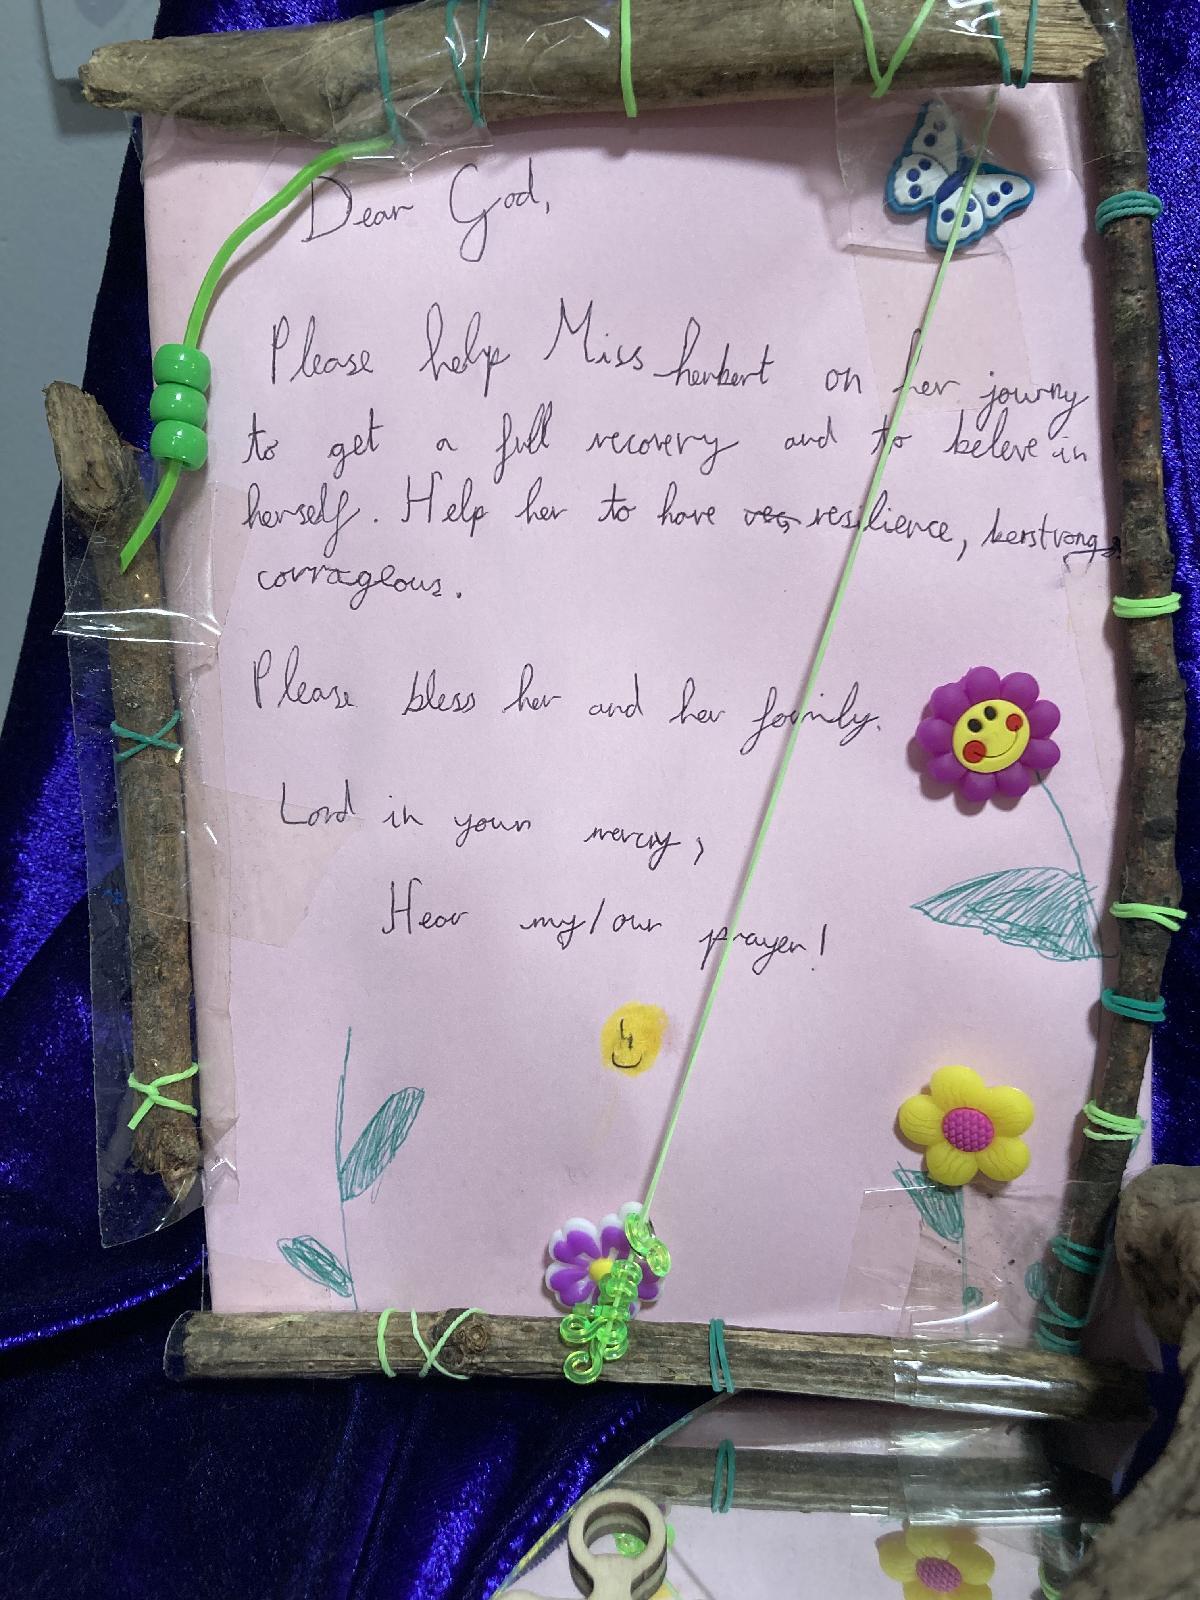 Dear God,
Please help Miss herbert on her journy
to get a full recovery and to beleve in
herself. Help her to have res resilience, be strong
corrageous.
Please bless her and her family.
Lord in your mercy,
Hear my/our prayer!